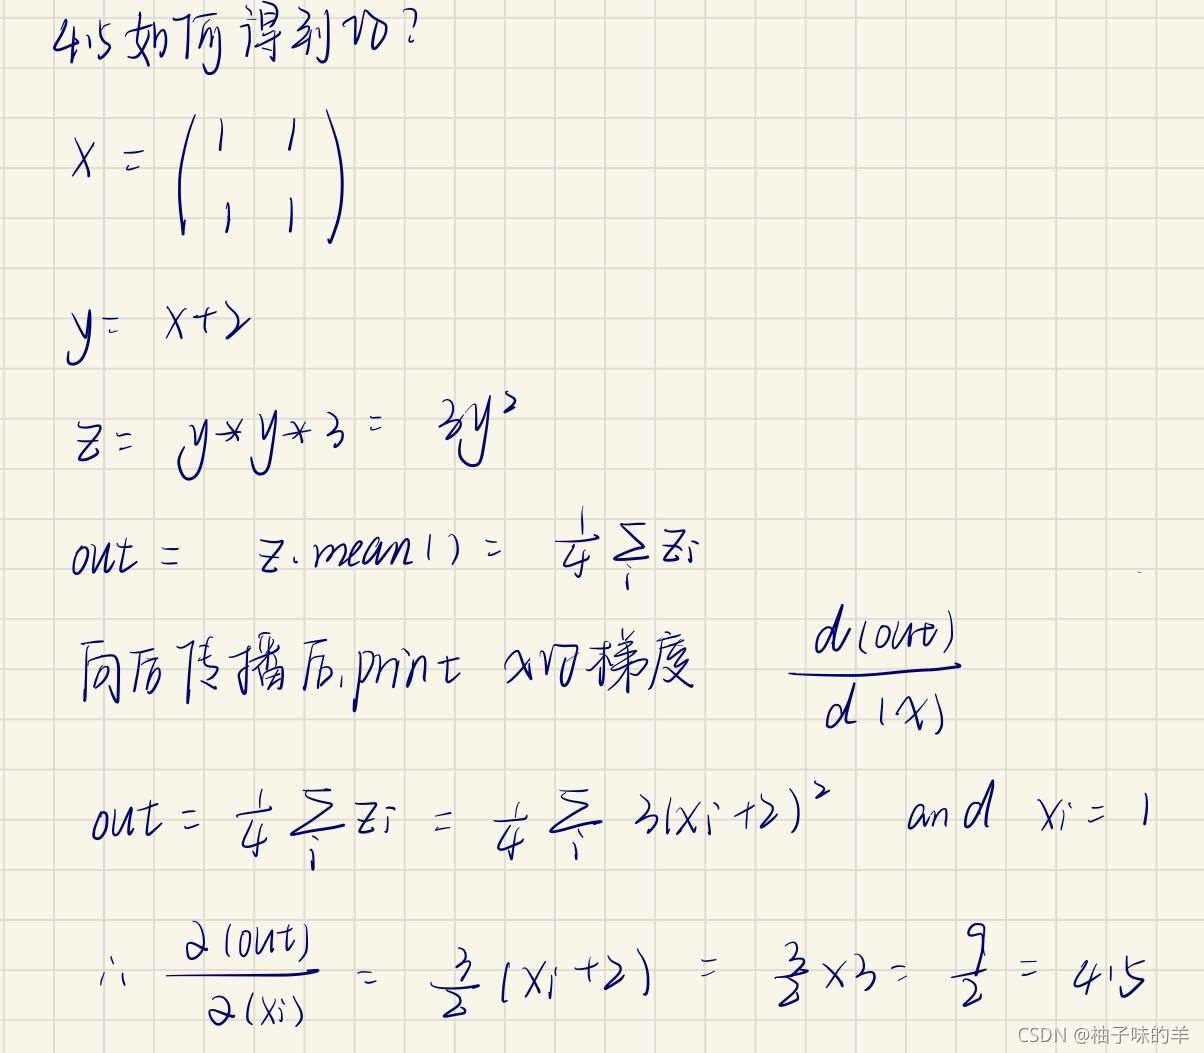 4.5如何得到的?
x = ( 1 1
1 1 )
y = x+2
z = y*y*3 = 3y²
out = z.mean() = 1/4 ∑i zi
向后传播后,print x的梯度 d(out)/d(x)
out = 1/4 ∑i zi = 1/4 ∑i 3(xi+2)² and xi = 1
∴ ∂(out)/∂(xi) = 3/2 (xi+2) = 3/2 ×3 = 9/2 = 4.5
CSDN @柚子味的羊